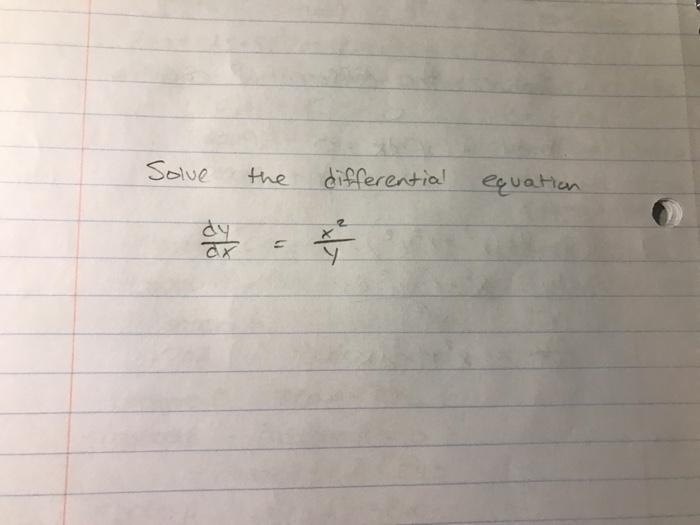 Solve the differential equation
dy/dx = x²/y